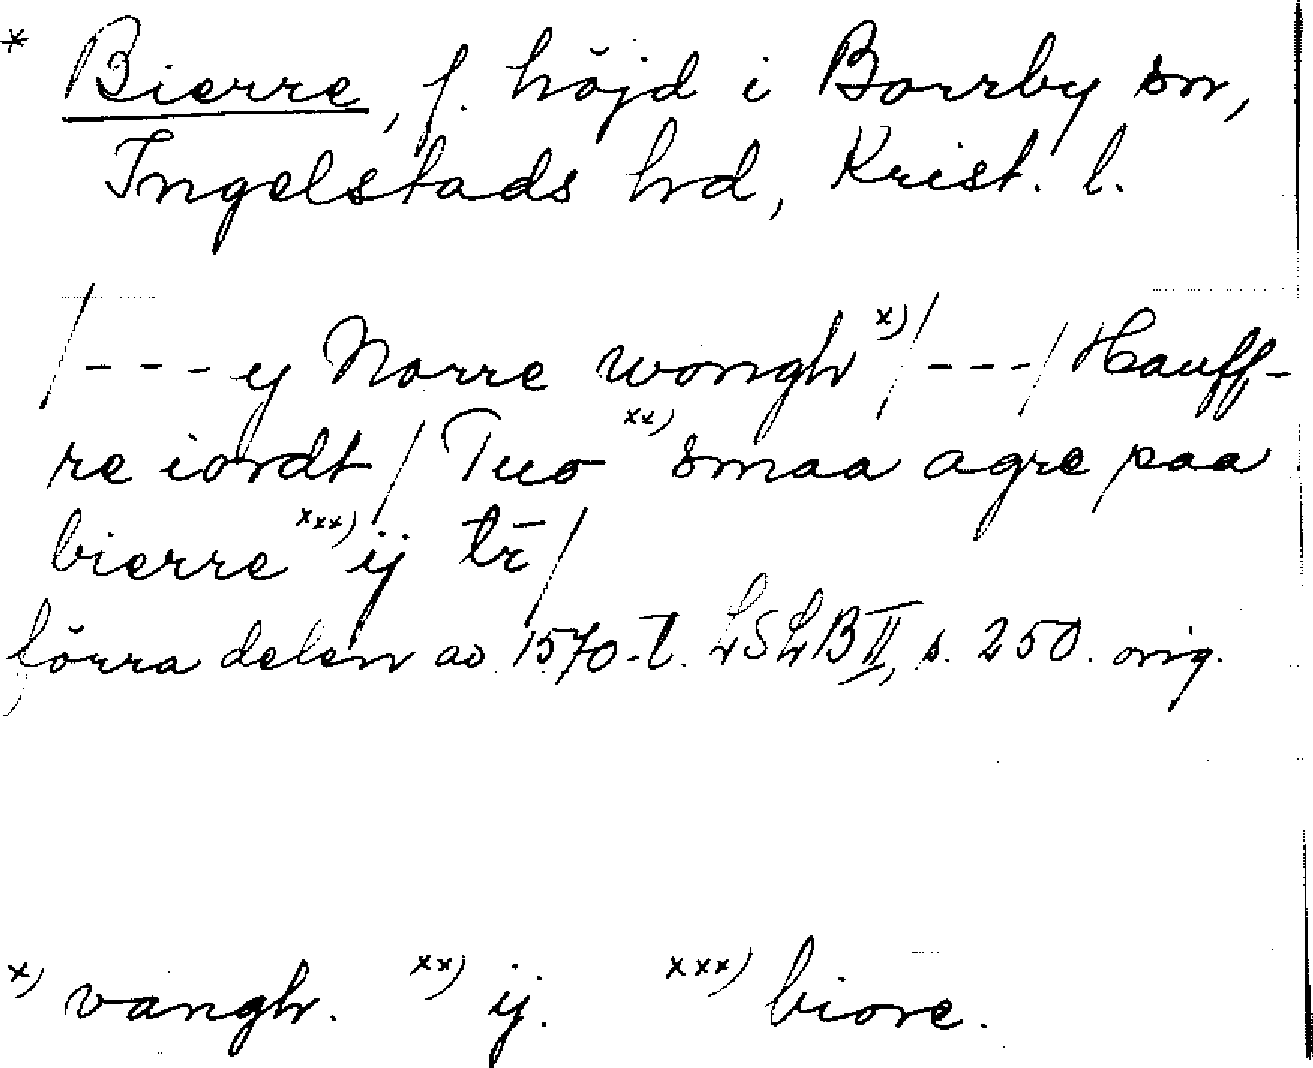 * Bierre, f. höjd i Borrby sn,
Ingelstads hd, Krist. l.
/--- y Norre wongh x)/---/ Hauff-
re iordt/ Tuo xx) smaa agre paa
bierre xxx) ij tr̄/
förra delen av 1570-t. LSLB II, s. 250. orig.
x) vangh. xx) ij. xxx) biore.